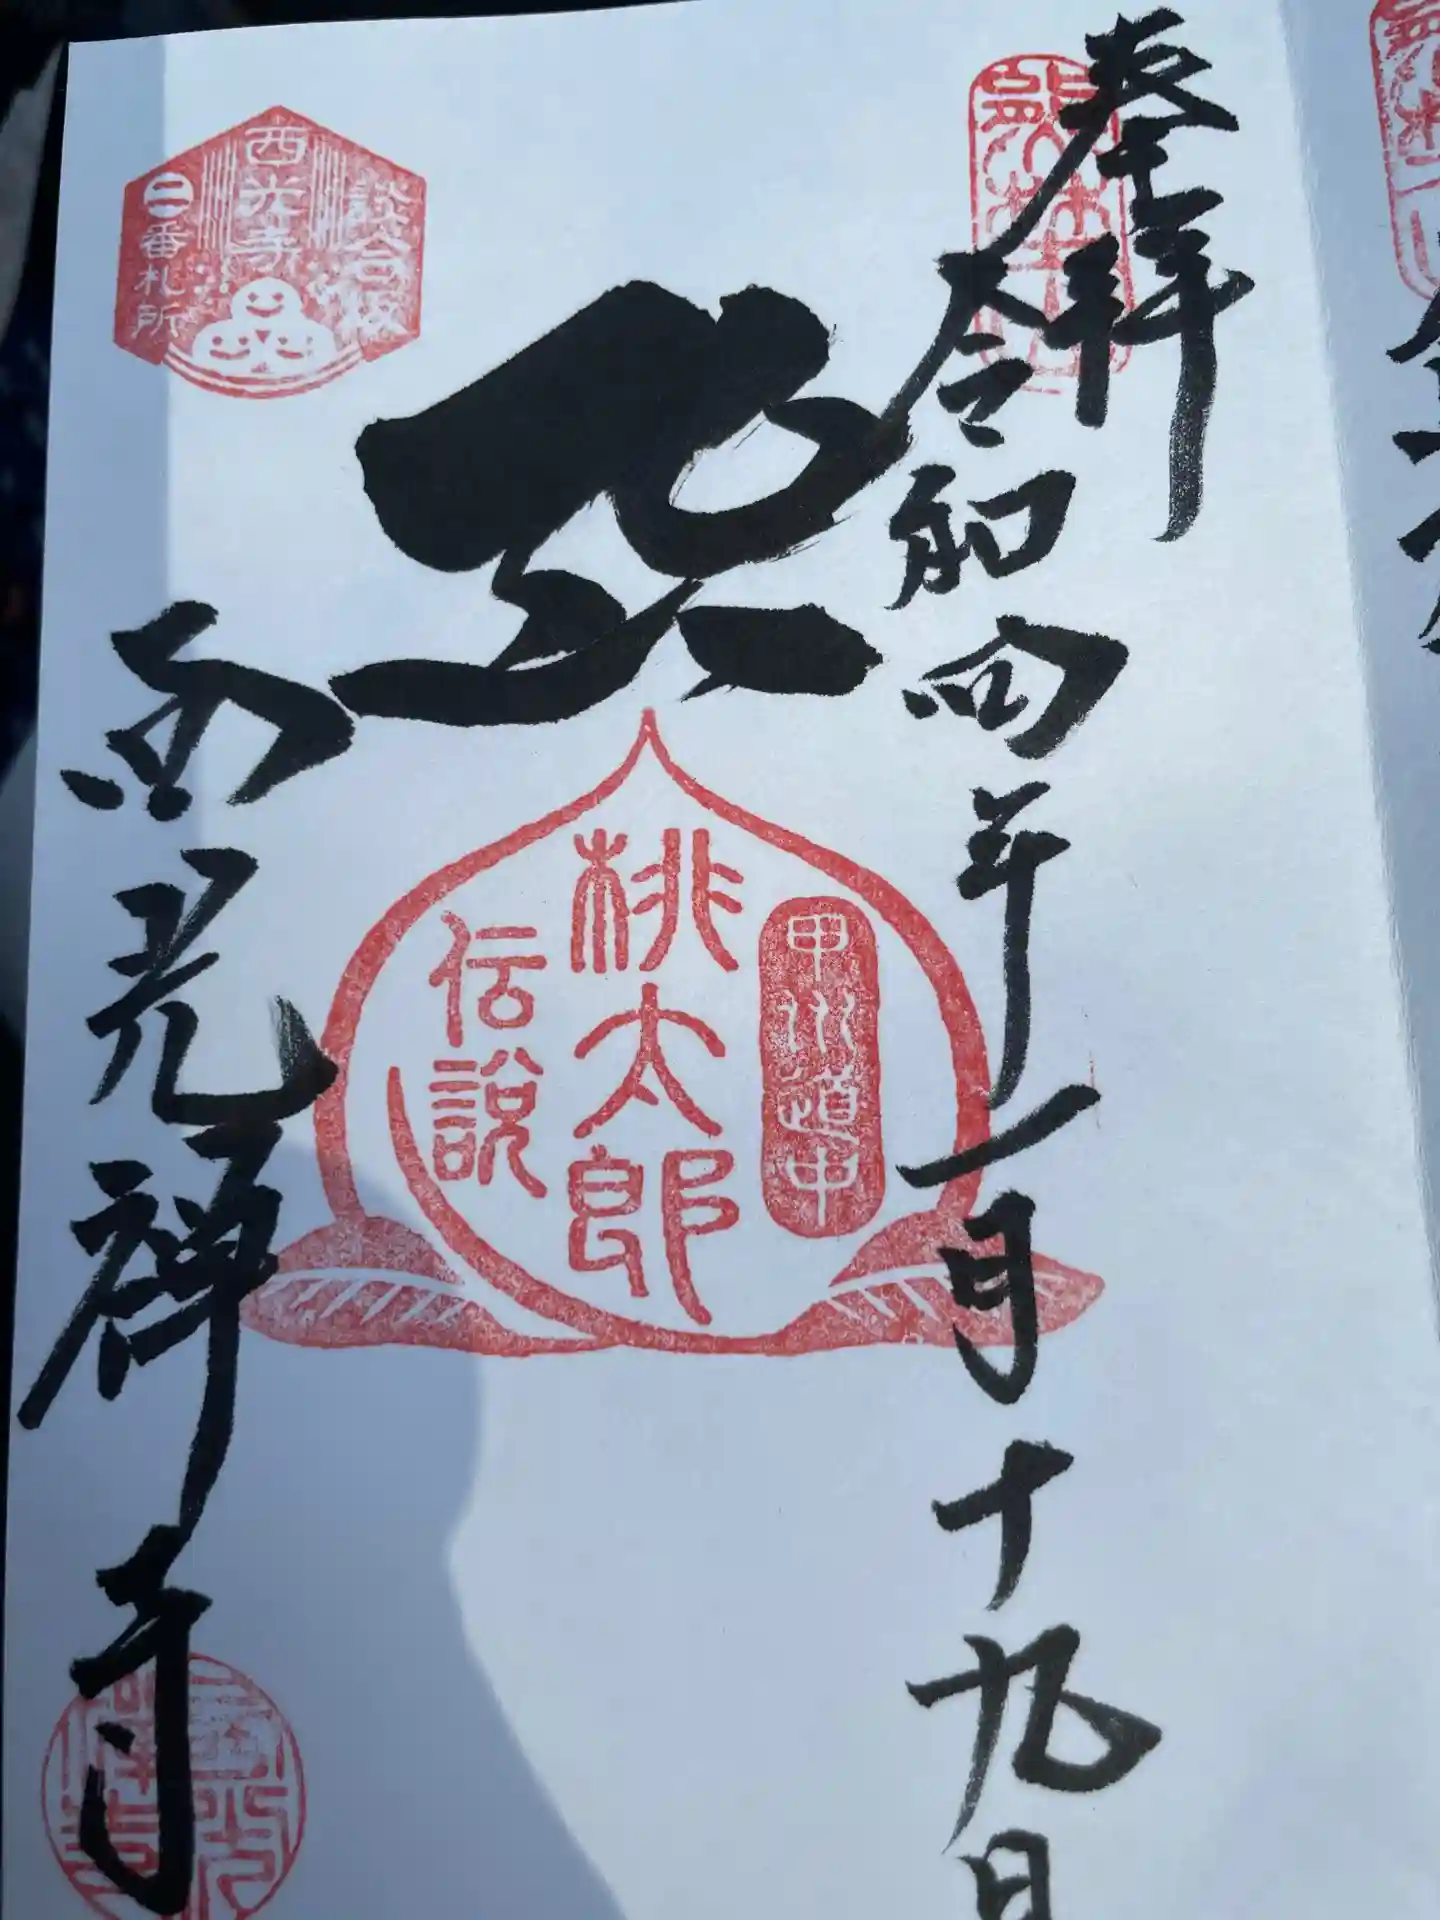 奉拝
令和四年一月十九日
甲州道中
桃太郎
伝説
談合坂
西光寺
二番札所
西光禅寺